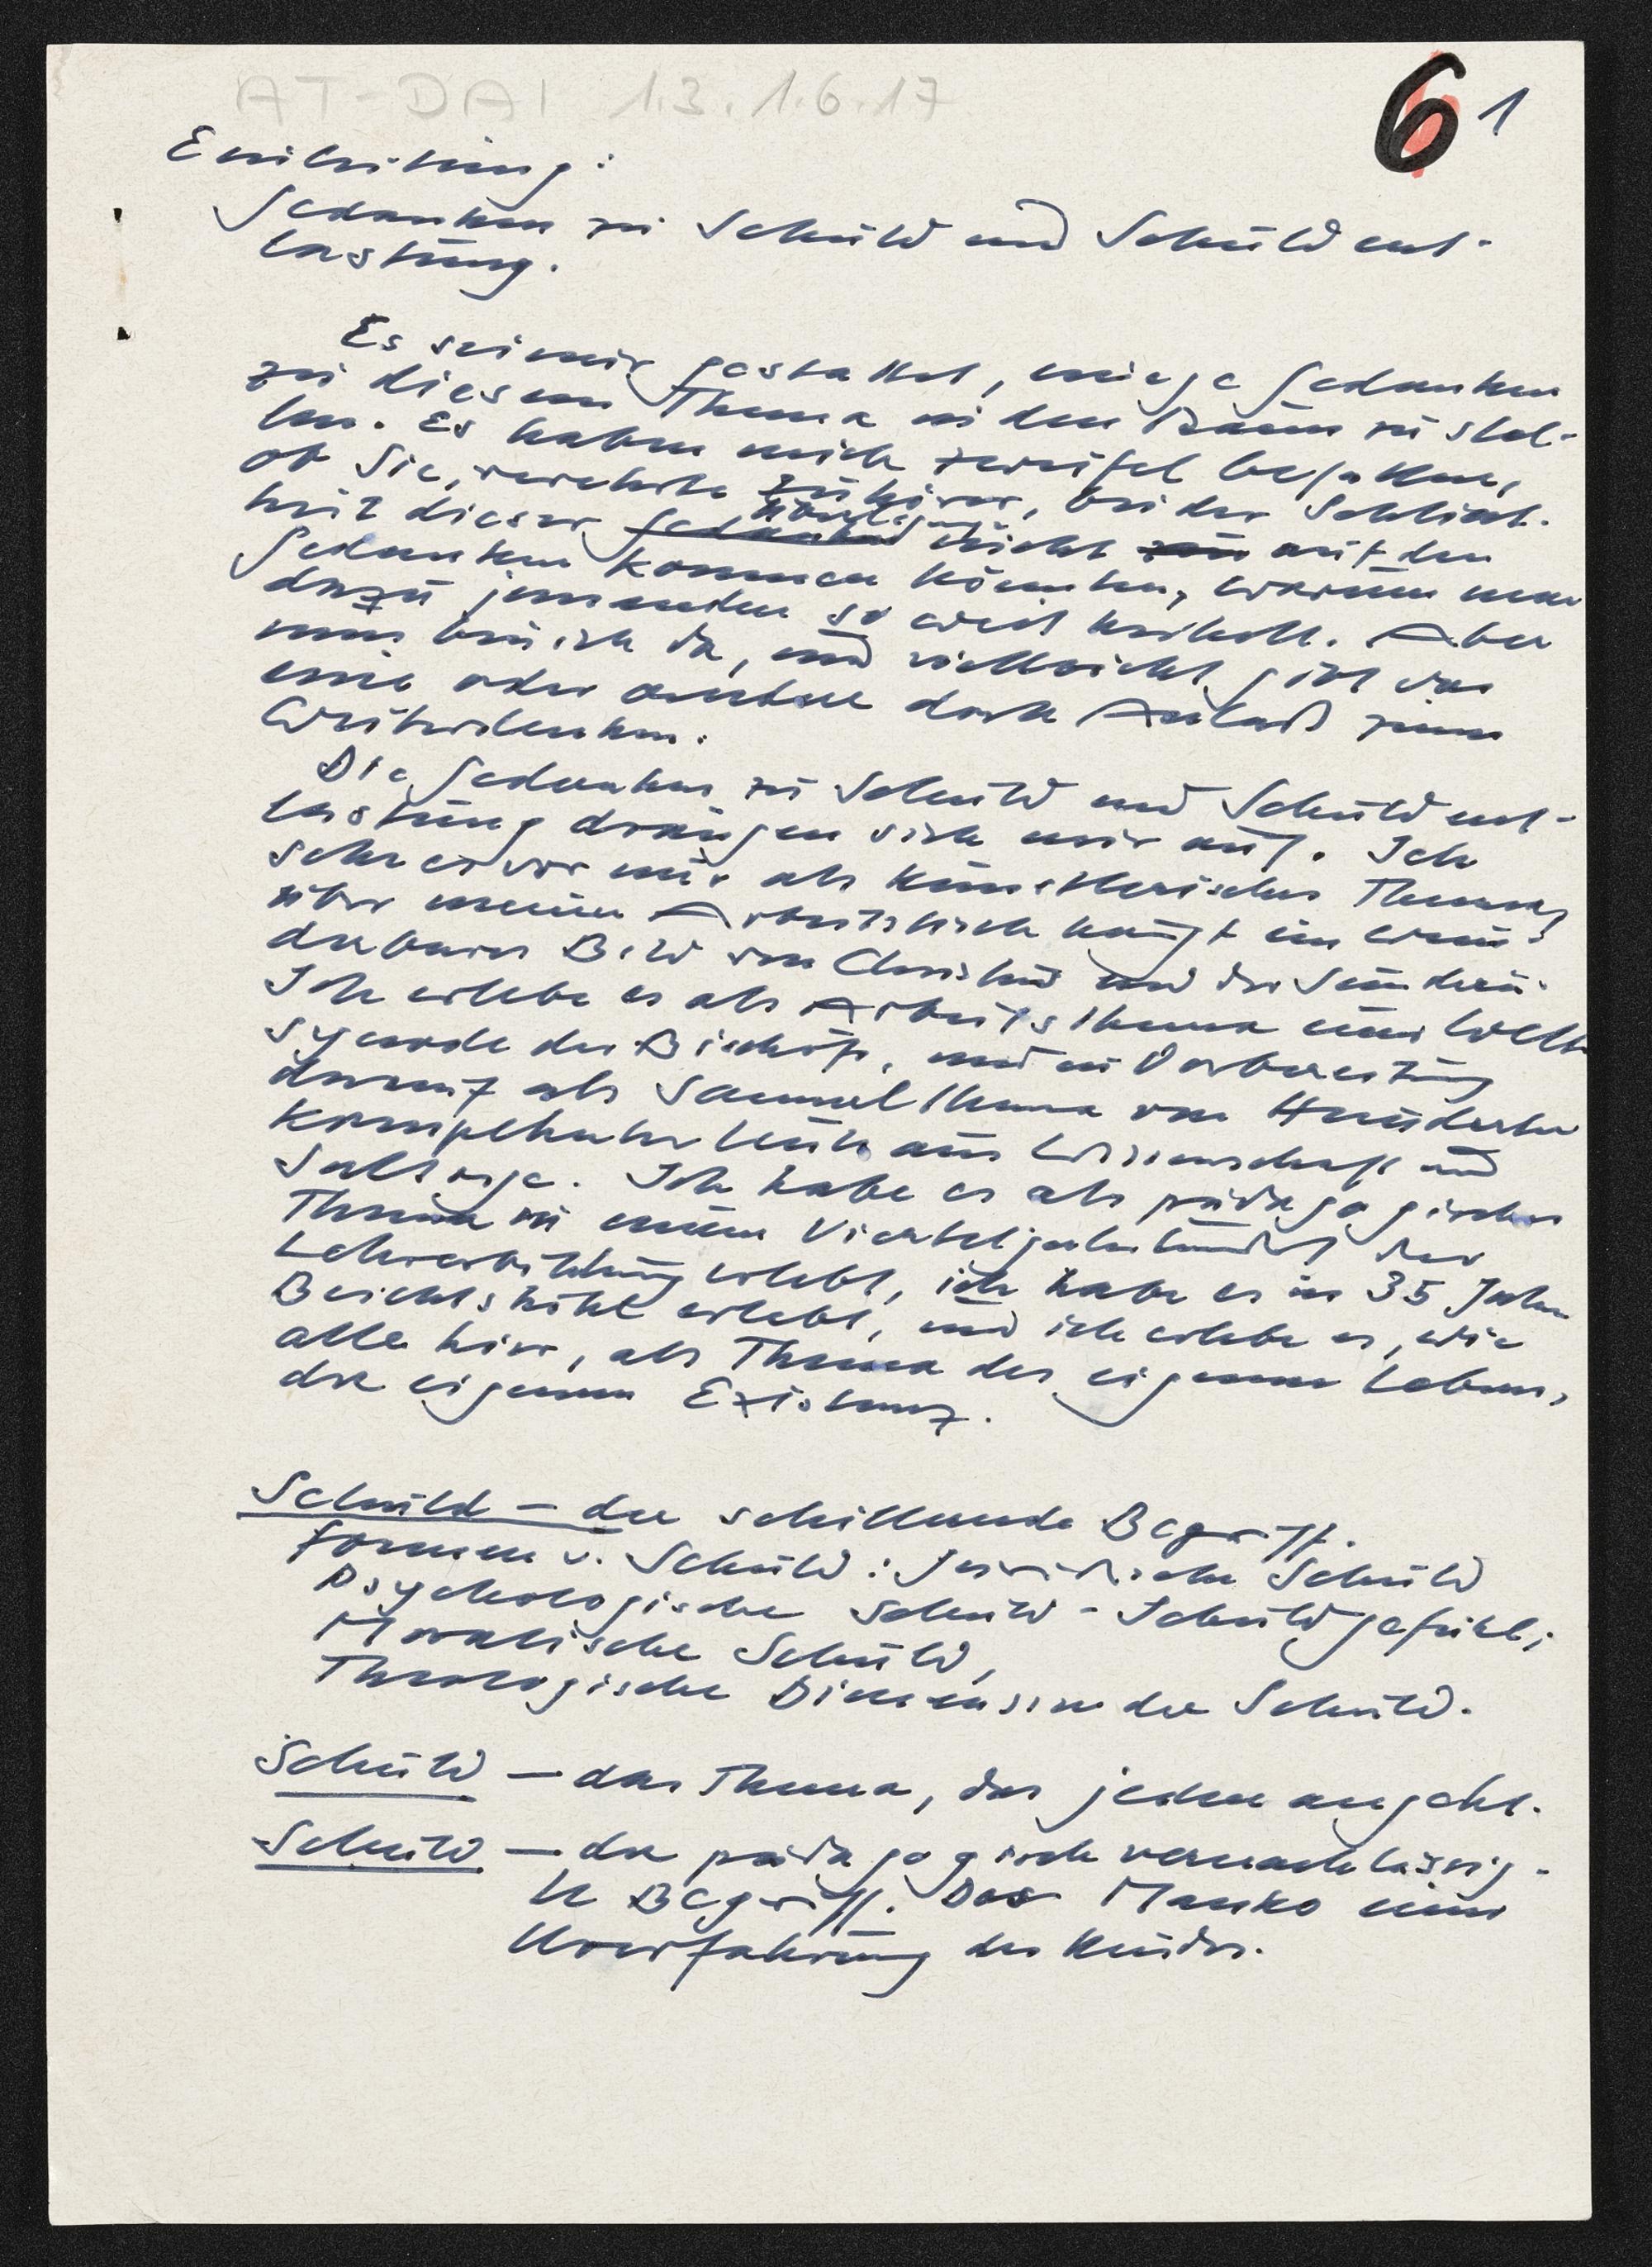 AT-DAI 1.3.1.6.17
6 1
Einleitung:
Gedanken zu Schuld und Schuldent-
lastung.
Es sei mir gestattet, einige Gedanken
zu diesem Thema in den Raum zu stel-
len. Es haben mich Zweifel befallen,
ob Sie, verehrte Zuhörer, bei der Schlicht-
heit dieser Gedanken Überlegungen nicht auf den
Gedanken kommen könnten, warum man
dazu jemanden so weit herholt. Aber
nun bin ich da, und vielleicht gibt das
eine oder andere doch Anlaß zum
Weiterdenken.
Die Gedanken zu Schuld und Schuldent-
lastung drängen sich mir auf. Ich
sehe es vor mir als künstlerisches Thema,
über meinem Arbeitstisch hängt ein wun-
derbares Bild von Christus und der Sünderin.
Ich erlebe es als Arbeitsthema einer Welt-
synode der Bischöfe, und in Vorbereitung
darauf als Sammelthema von Hunderten
kompetenter Leute aus Wissenschaft und
Seelsorge. Ich habe es als pädagogisches
Thema in einem Vierteljahrhundert der
Lehrerbildung erlebt, ich habe es in 35 Jahren
Beichtstuhl erlebt, und ich erlebe es, wie
alle hier, als Thema des eigenen Lebens,
der eigenen Existenz.
Schuld - der schillernde Begriff.
Formen v. Schuld: Juridische Schuld
Psychologische Schuld - Schuldgefühl;
Moralische Schuld,
Theologische Dimension der Schuld.
Schuld - das Thema, das jeden angeht.
Schuld - der pädagogisch vernachlässig-
te Begriff. Das Manko einer
Urerfahrung des Kindes.